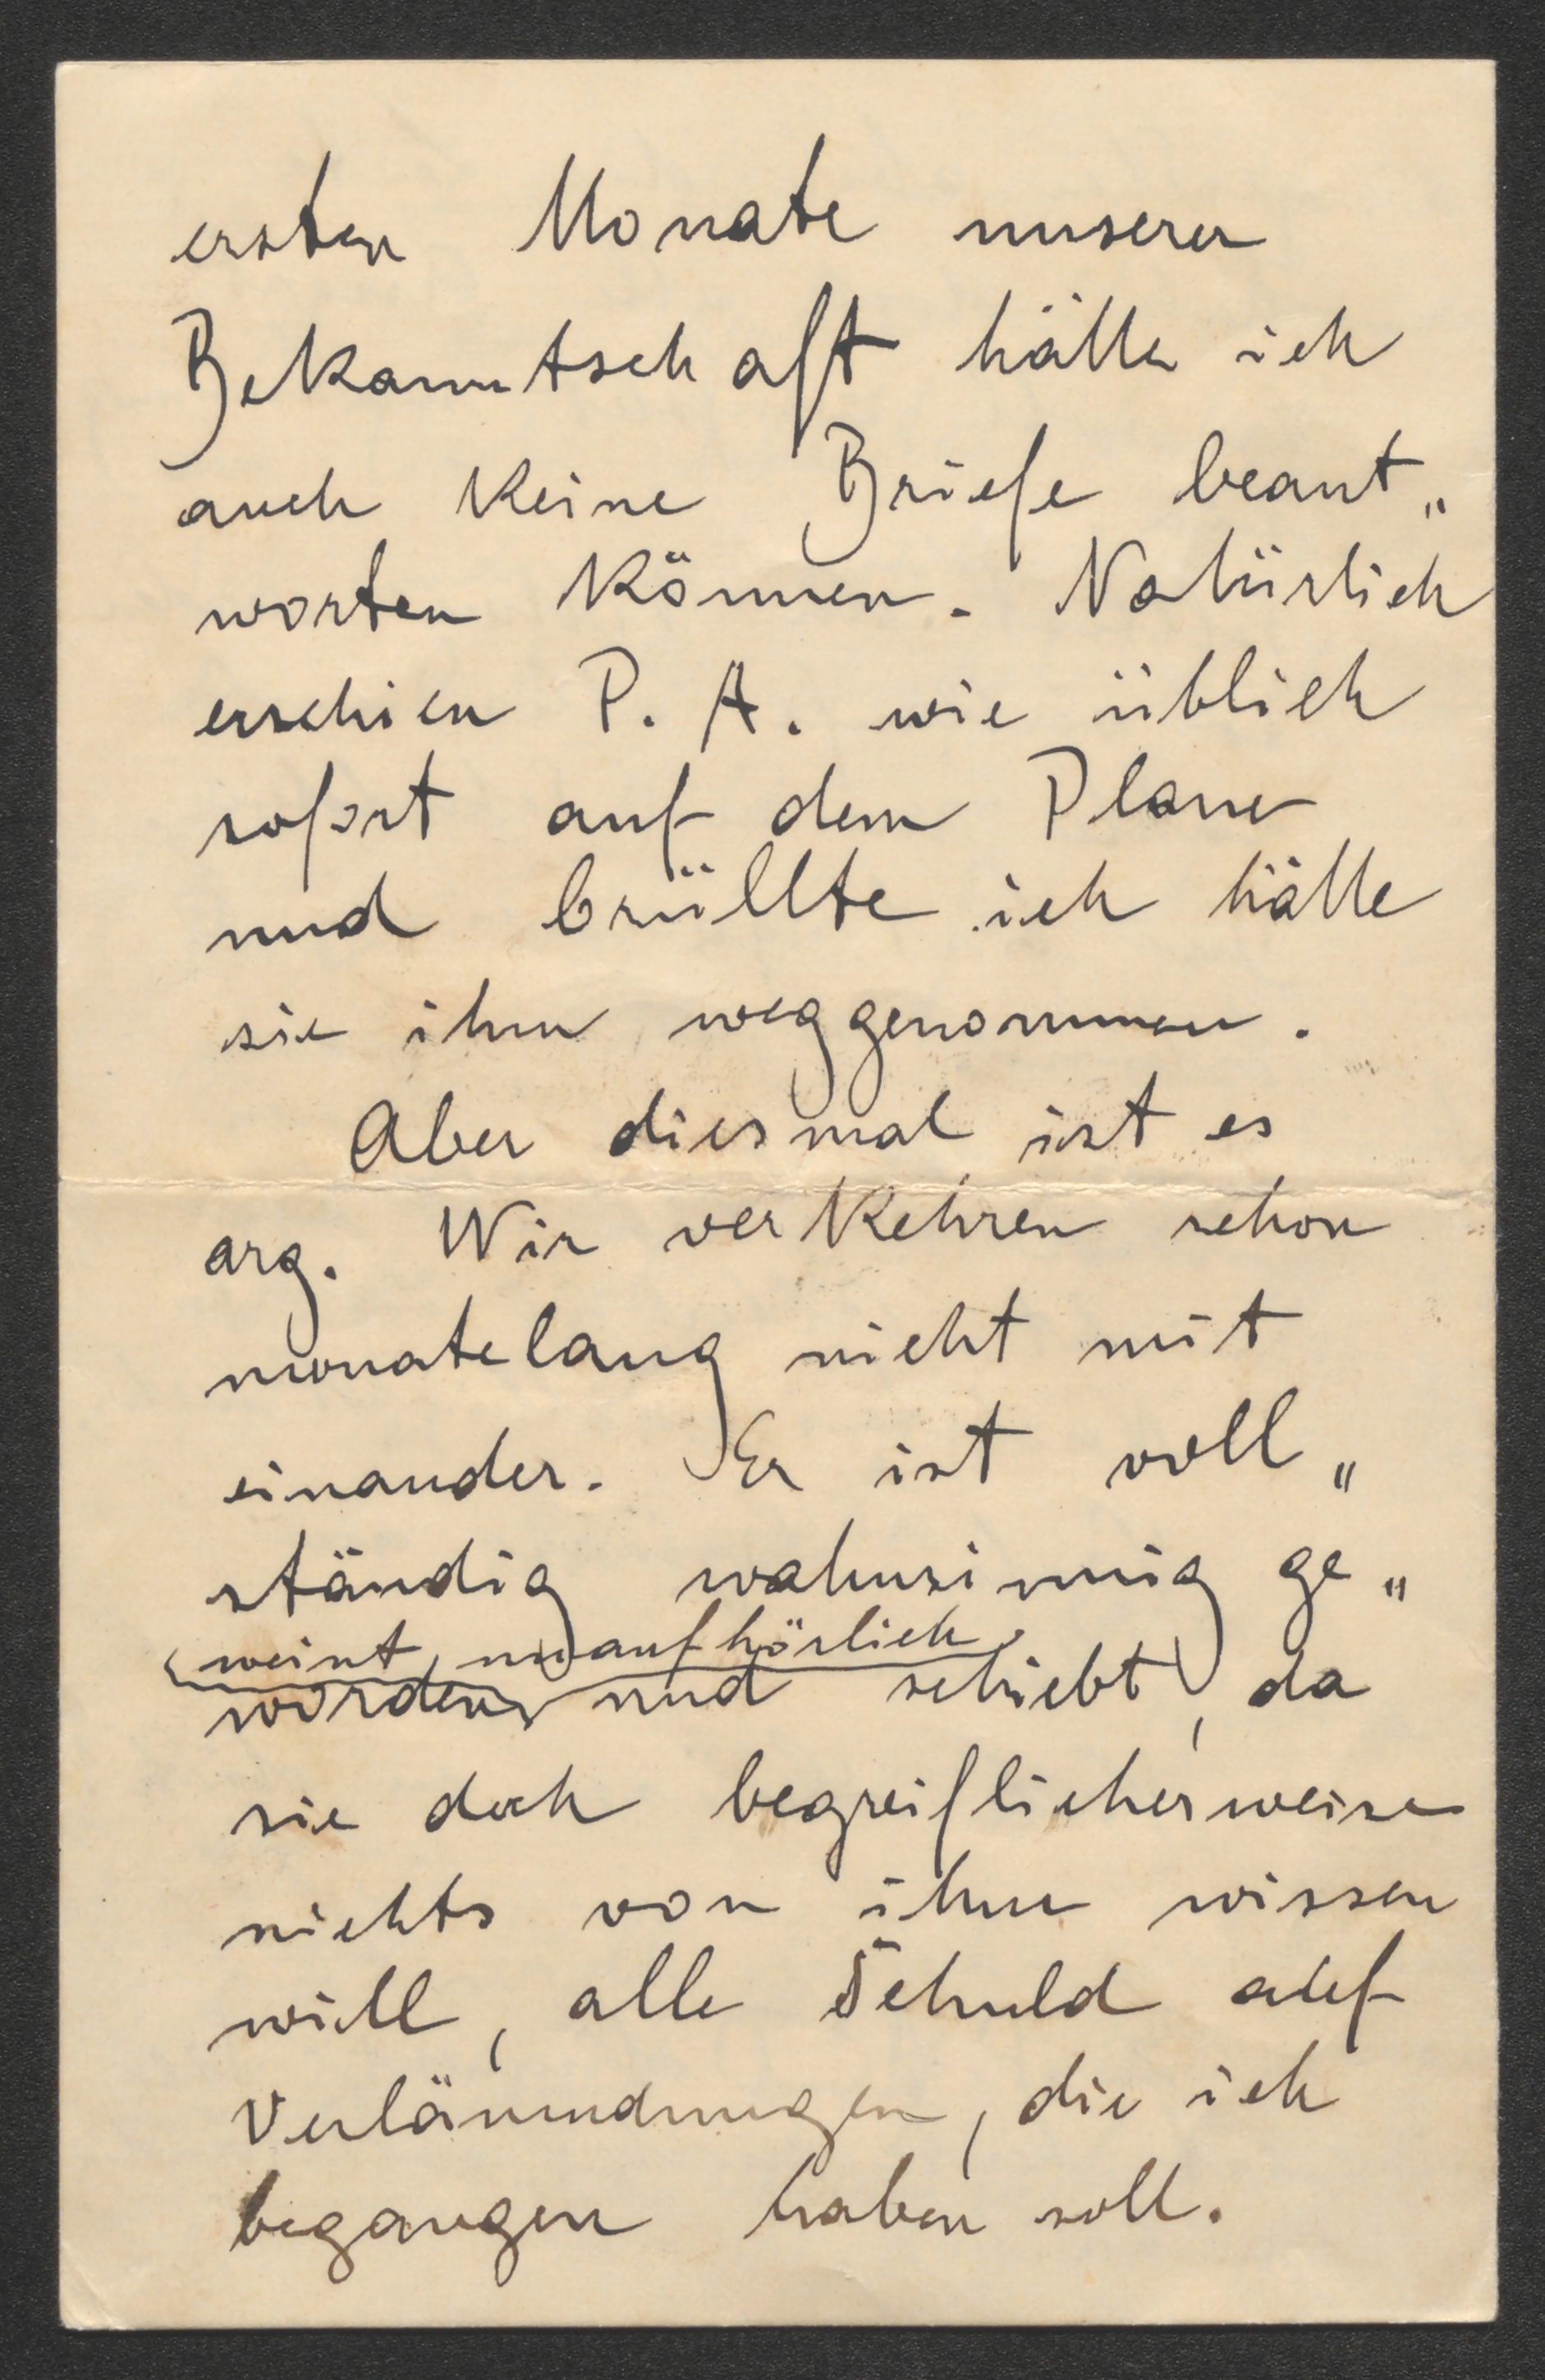 ersten Monate unserer
Bekanntschaft hätte ich
auch keine Briefe beant„
worten können. Natürlich
erschien P. A. wie üblich
sofort auf dem Plane
und brüllte ich hätte
sie ihm weggenommen.
Aber diesmal ist es
arg. Wir verkehren schon
monatelang nicht mit
einander. Er ist voll„
ständig wahnsinnig ge„
weint unaufhörlich,
worden, und schiebt, da
sie doch begreiflicherweise
nichts von ihm wissen
will, alle Schuld auf
Verläumdungen, die ich
begangen haben soll.